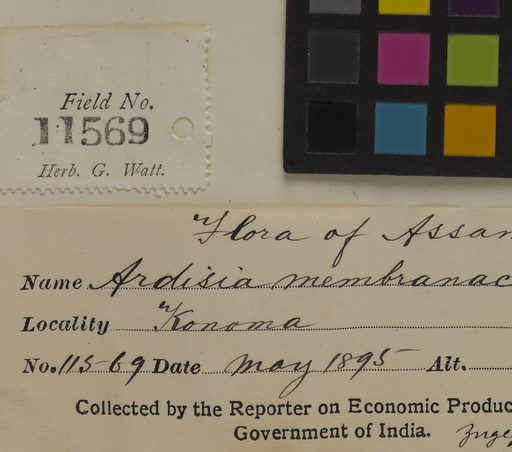 Field No.
11569
Herb. G. Watt.
Flora of Assam
Name Ardisia membranac
Locality Konoma
No. 11569 Date May 1895 Alt.
Collected by the Reporter on Economic Produc
Government of India.